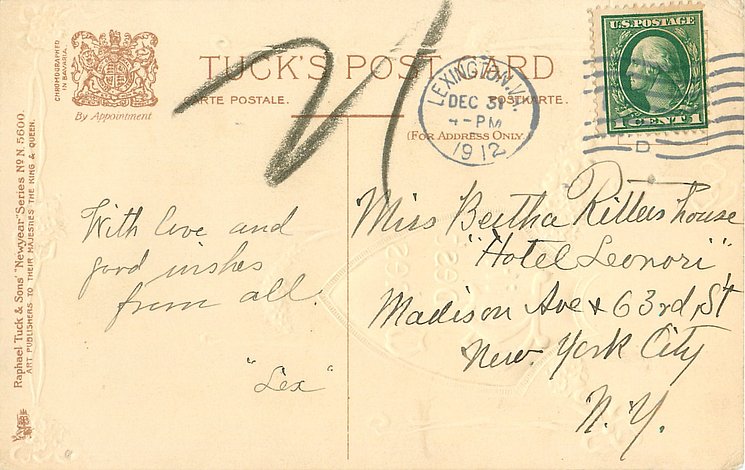 CHROMOGRAPHED
IN BAVARIA.
By Appointment
TUCK'S POST CARD
CARTE POSTALE.
POSTKARTE.
(FOR ADDRESS ONLY)
LEXINGTON, VA.
DEC 31
4-PM
1912
U.S. POSTAGE
1 CENT 1
D
Raphael Tuck & Sons' "Newyear" Series No N. 5600.
ART PUBLISHERS TO THEIR MAJESTIES THE KING & QUEEN.
With love and
good wishes
from all.
"Lex"
Miss Bertha Rittershouse
"Hotel Leonori"
Madison Ave & 63rd St
New York City
N.Y.